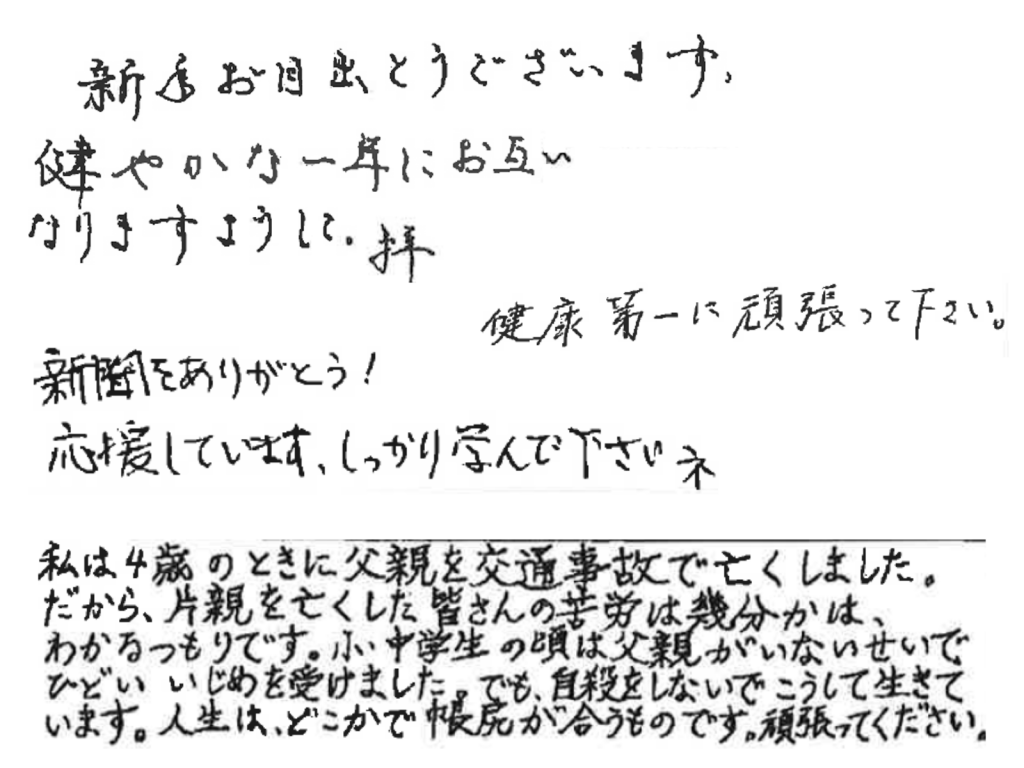 新年お目出とうございます、
健やかな一年にお互い
なりますように。拝
健康第一に頑張って下さい。
新聞をありがとう!
応援しています、しっかり学んで下さいネ
私は4歳のときに父親を交通事故で亡くしました。
だから、片親を亡くした皆さんの苦労は幾分かは、
わかるつもりです。小、中学生の頃は父親がいないせいで
ひどいいじめを受けました。でも、自殺をしないでこうして生きて
います。人生は、どこかで帳尻が合うものです。頑張ってください。